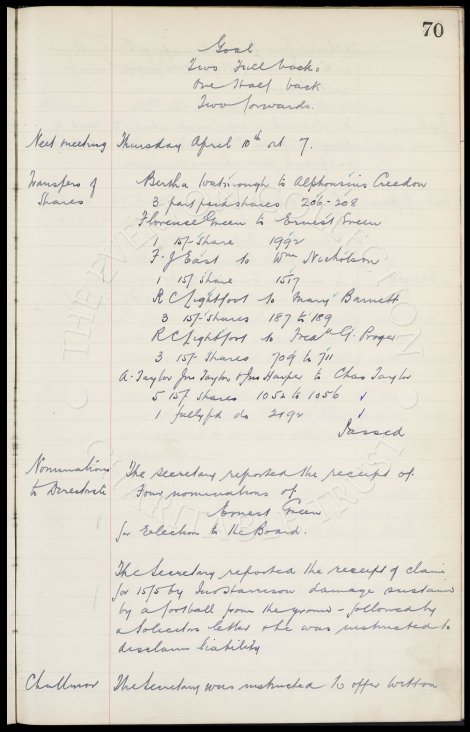 70
Goal
Two Full backs
One Half back
Two forwards.
Next meeting Thursday April 10th at 7.
Transfers of Shares
Bertha to Alphonsius Creedon
3 part paid shares 206-208
Florence Green to Ernest Green
1 15/- Share 1992
F. J East to Wm Nicholson
1 15/ Share 1517
R C Lightfoot to Mary Barnett
3 15/- Shares 187 to 189
R C Lightfoot to Fredk G. Proger
3 15/- Shares 709 to 711
A. Taylor Jno Taylor & Jno Harper to Chas Taylor
5 15/ Shares 1052 to 1056
1 fully pd do 2192
Passed
Nominations to Directorate
The Secretary reported the receipt of
Four nominations of
Ernest Green
for Election to the Board.
The Secretary reported the receipt of claim
for 15/5 by Jno Harrison damage sustained
by a football from the ground - followed by
a Solicitors letter & he was instructed to
disclaim liability
The Secretary was instructed to offer Witton
THE EVERTON COLLECTION
CHARITABLE TRUST